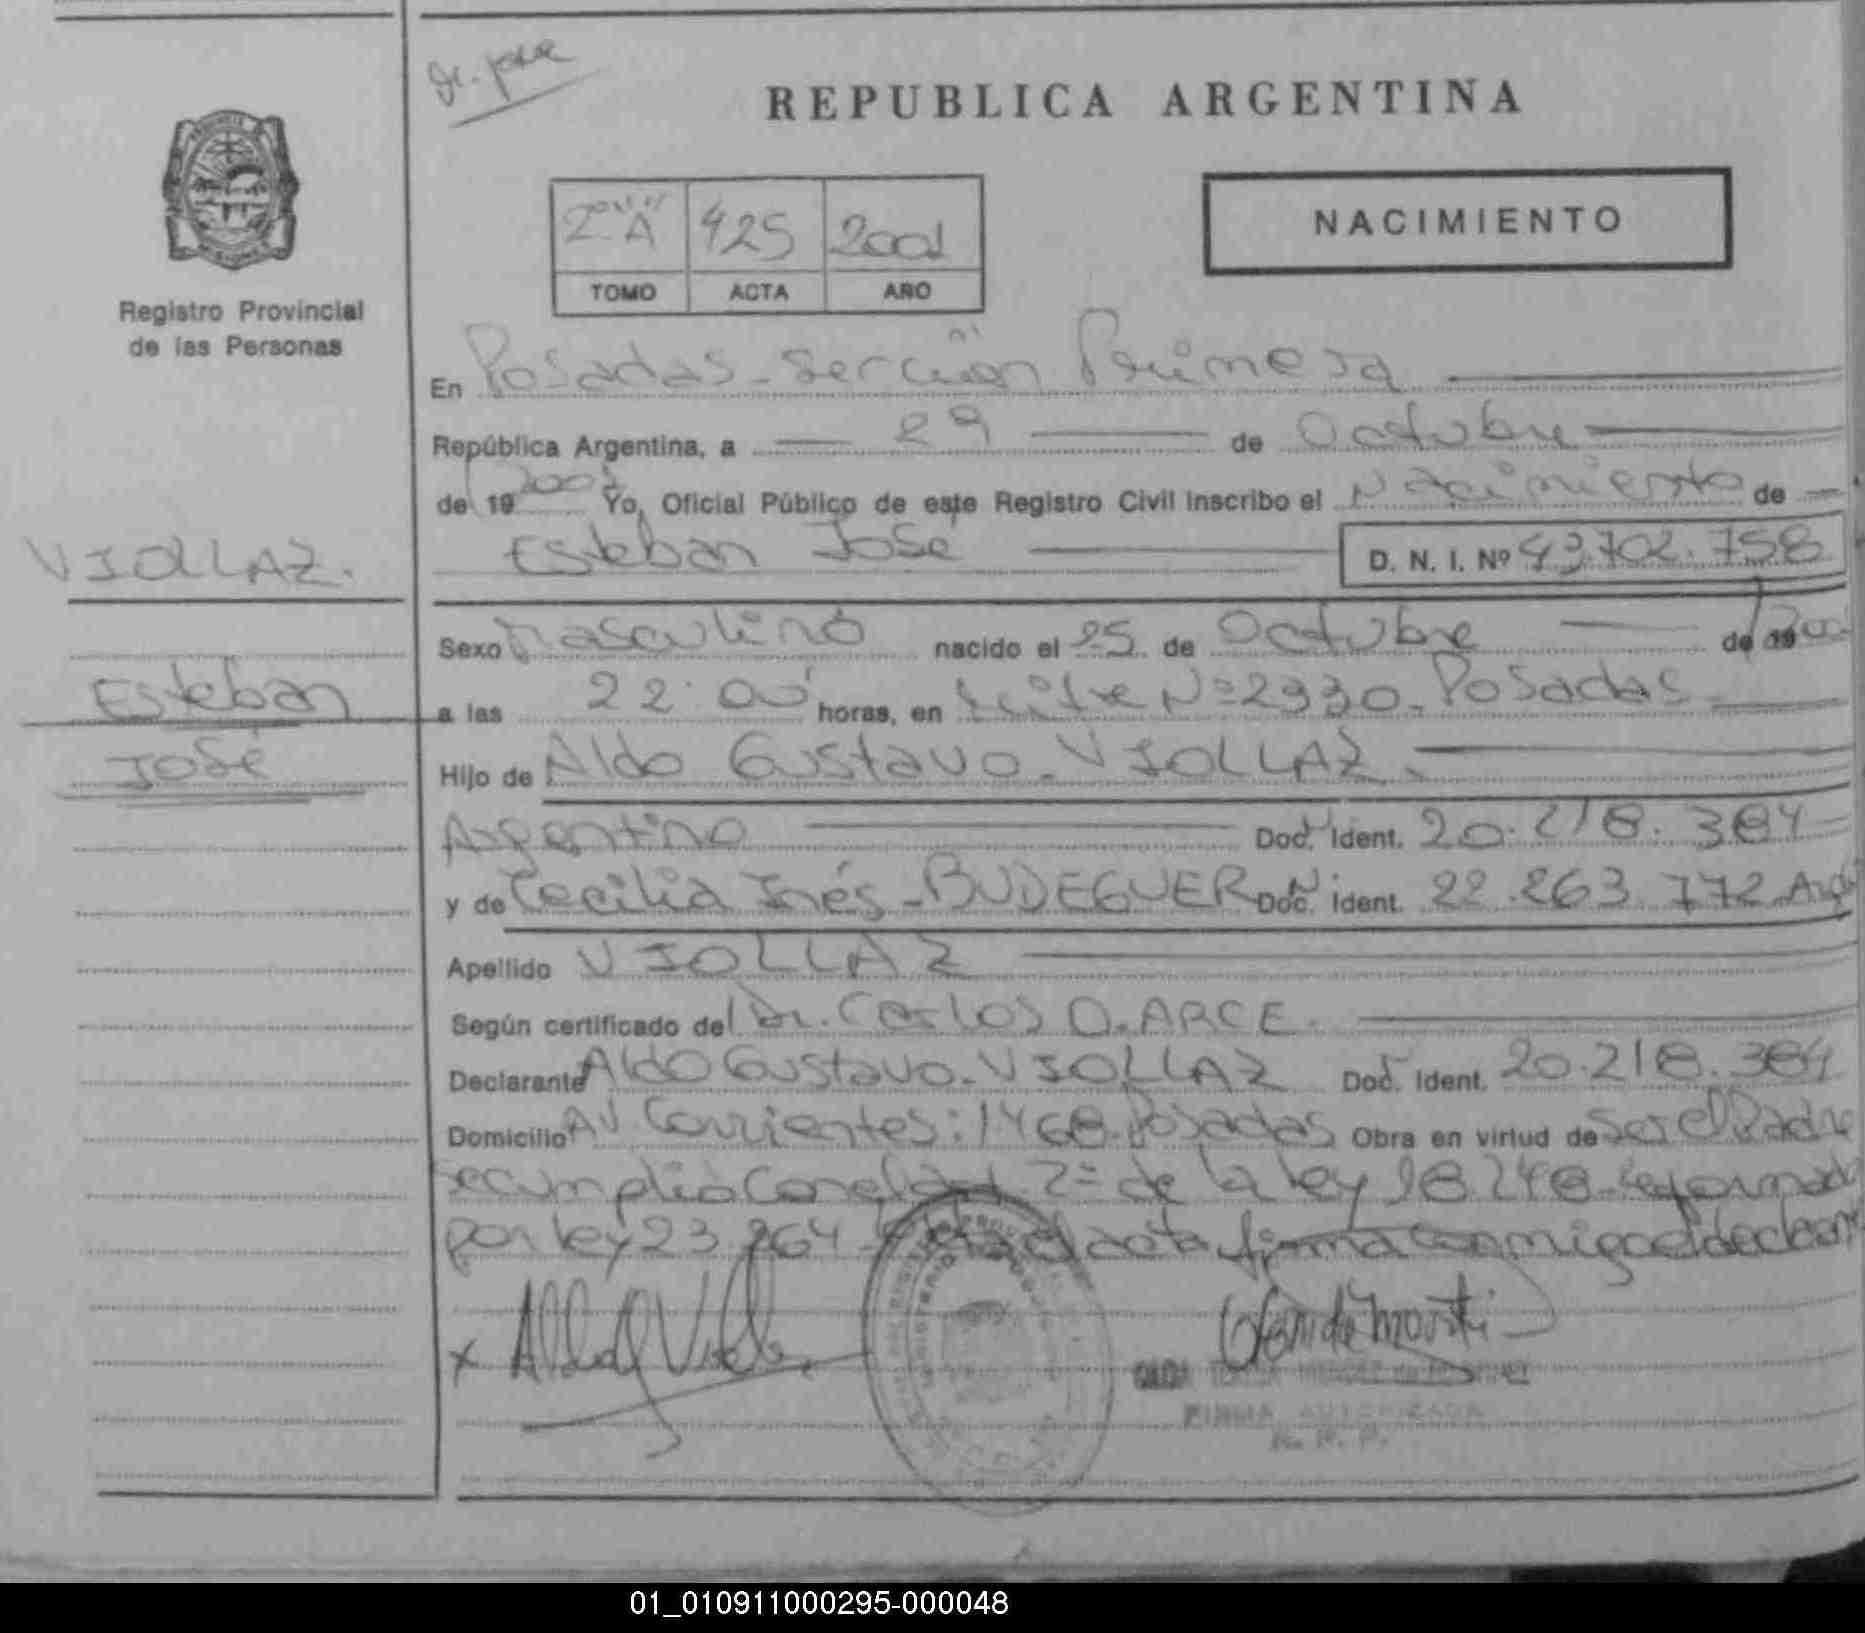 Dr. José
REPUBLICA ARGENTINA
2º "A" 425 2001
TOMO ACTA AÑO
NACIMIENTO
Registro Provincial
de las Personas
En Posadas - Sección Primera
República Argentina, a 29 de Octubre
de 19 2001 Yo, Oficial Público de este Registro Civil inscribo el Nacimiento de
Esteban José D. N. I. Nº 43.702.758
VIOLLAZ.
Esteban
José
Sexo Masculino nacido el 25 de Octubre de 19 200
a las 22:00 horas, en Mitre Nº 2330 - Posadas
Hijo de Aldo Gustavo - VIOLLAZ.
Argentino Doc. Ident. 20.218.384
y de Cecilia Inés - BUDEGUER Doc. Ident. 22.263.772
Apellido VIOLLAZ
Según certificado del Dr. Carlos O. ARCE.
Declarante Aldo Gustavo - VIOLLAZ Doc. Ident. 20.218.384
Domicilio Av Corrientes: 1468 - Posadas Obra en virtud de ser el Padre
se cumplió con el art 2º de la ley 18.248 - reformada
por ley 23.264 - acta firma conmigo el declarante
FIRMA AUTORIZADA
R. P. P.
01_010911000295-000048